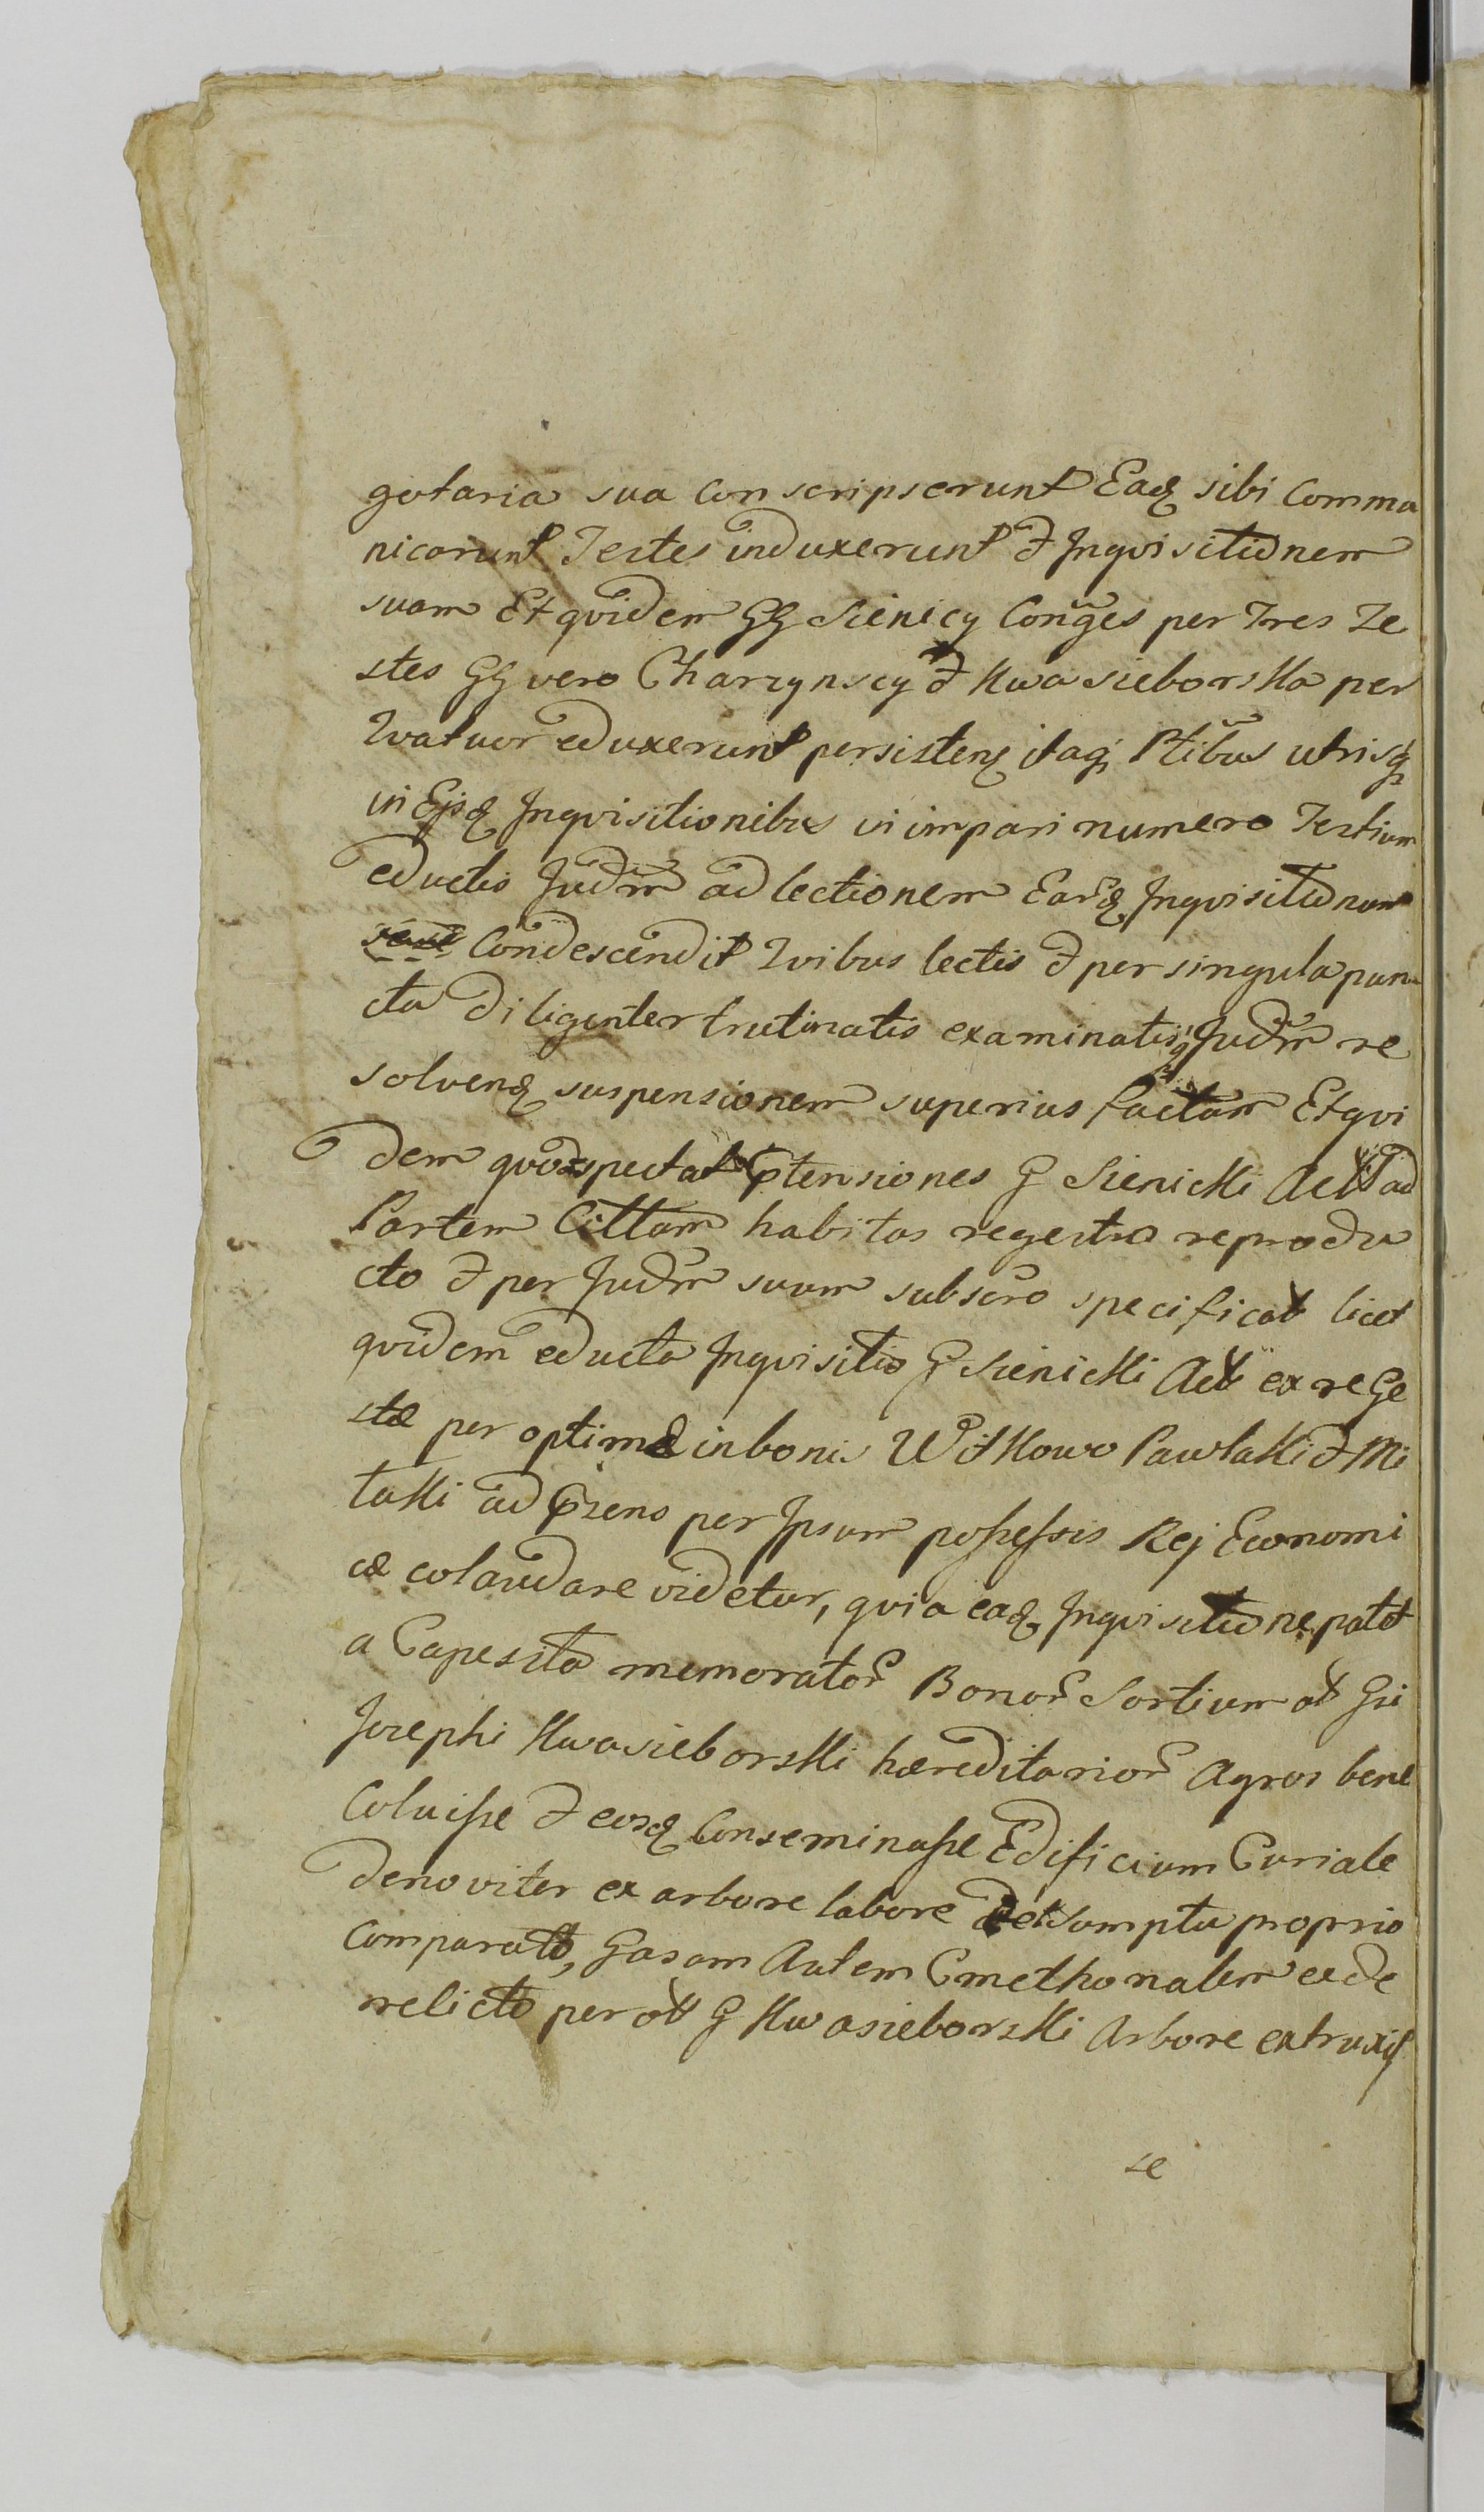 gotaria sua conscripserunt Eadꝫ sibi Commu
nicarunt Testes induxerunt & Inqvisitionem
suam Et qvidem GG Sienicy Conges per Tres Te
stes GG vero Charzynscy & Kwasieborska per
Qvatuor eduxerunt persistenꝫ itaqꝫ Ptibus utrisqꝫ
in Ejsdꝫ Inqvisitionibus in impari numero Testium
eductis Judm ad lectionem Eardꝫ Inqvisitionum
Condescendit Qvibus lectis & per singula pun
cta diligenter trutinatis examinatisqꝫ Judm re
solvendꝫ suspensionem superius factam Et qvi
dem qvod spectat ptensiones G Sienicki Act ad
Partem Cittam habitas regestro reprodu
cto & per Judm suum subscro specificat licet
qvidem educta Inqvisitio G Sienicki Act ex re Ge
stæ per optime in bonis Witkowo Pawlaki & Mi
taki ad przens per Ipsum possessis Rej Economi
cæ colaudare videtur, qvia eadꝫ Inqvisitione patet
a Capesita memorator Bonor Sortium ot Gsi
Josephi Kwasieborski hæreditarior Agros bene
Coluisse & eosdꝫ Conseminasse Edificium Curiale
denoviter ex arbore labore et sumptu proprio
comparato, Casam Autem Cmethonalem ex de
relicto per ot G Kwasieborski Arbore extruxis
se